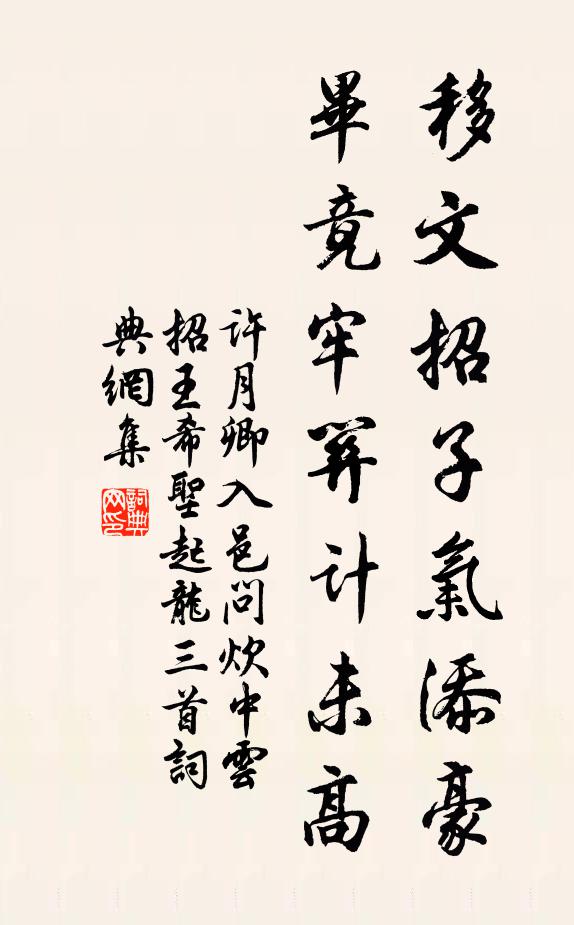 移文招子氣添豪
畢竟牢筭計未高
許月卿入邑問炊中雲
招王希聖起龍三首詞
典網集
詞典网印